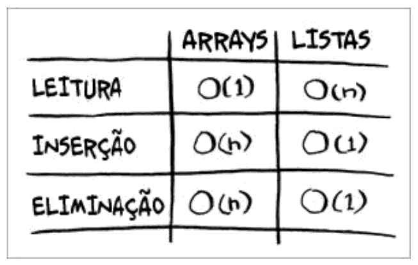 ARRAYS LISTAS
LEITURA O(1) O(n)
INSERÇÃO O(n) O(1)
ELIMINAÇÃO O(n) O(1)